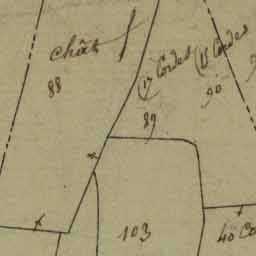 chât
88
Cordes
89
Cordes
90
103
40 Co